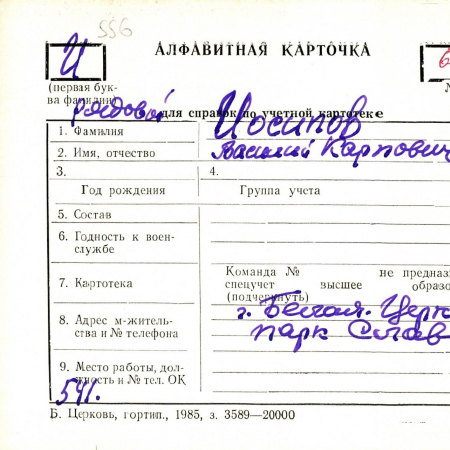 556
АЛФАВИТНАЯ КАРТОЧКА
И
6
(первая бук-
ва фамилии)
рядовой
для справок по учетной картотеке
1. Фамилия Иосипов
2. Имя, отчество Василий Карпович
3. 4.
Год рождения Группа учета
5. Состав
6. Годность к воен-
службе
7. Картотека
Команда № не предназ
спецучет высшее образо
(подчеркнуть)
8. Адрес м-житель-
ства и № телефона
г. Белая Церк
парк Слав
9. Место работы, дол-
жность и № тел. ОК
541.
Б. Церковь, гортип., 1985, з. 3589—20000